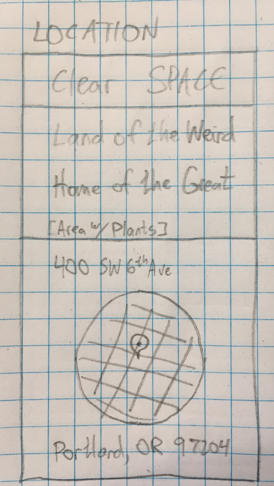 LOCATION
Clear SPACE
Land of the Weird
Home of the Great
[Area w/ Plants]
400 SW 6th Ave
Portland, OR 97204